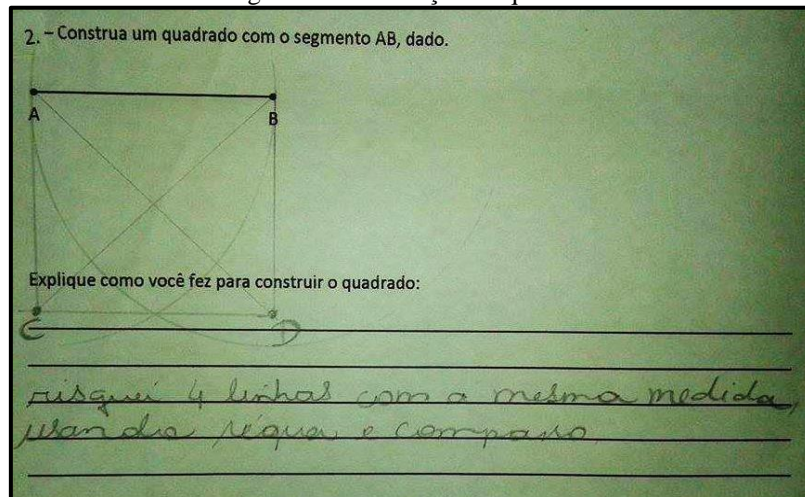 2. - Construa um quadrado com o segmento AB, dado.
A
B
Explique como você fez para construir o quadrado:
C
D
risquei 4 linhas com a mesma medida,
usando régua e compasso